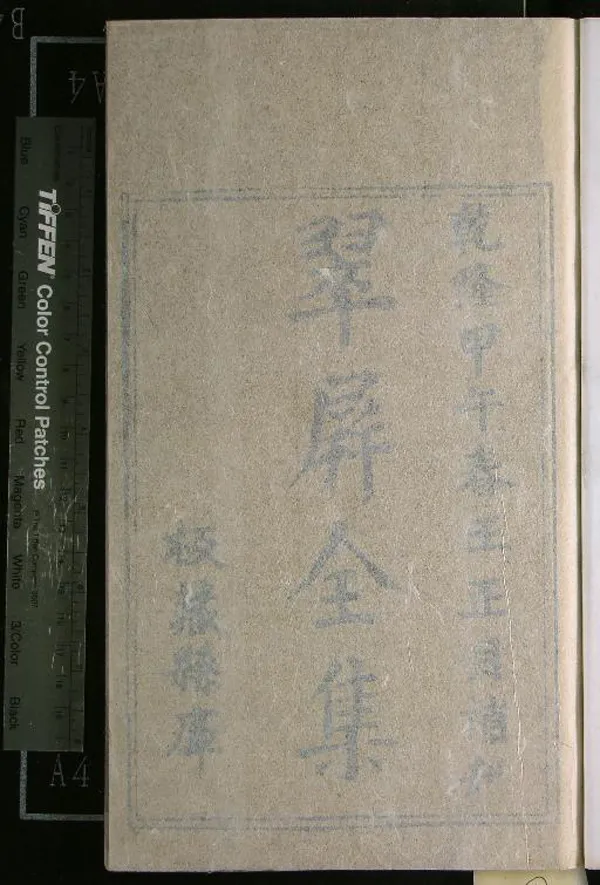 乾隆甲午春王正月
翠屏全集
板藏
TIFFEN Color Control Patches
Blue Cyan Green Yellow Red Magenta White 3/Color Black
A4
A4
B